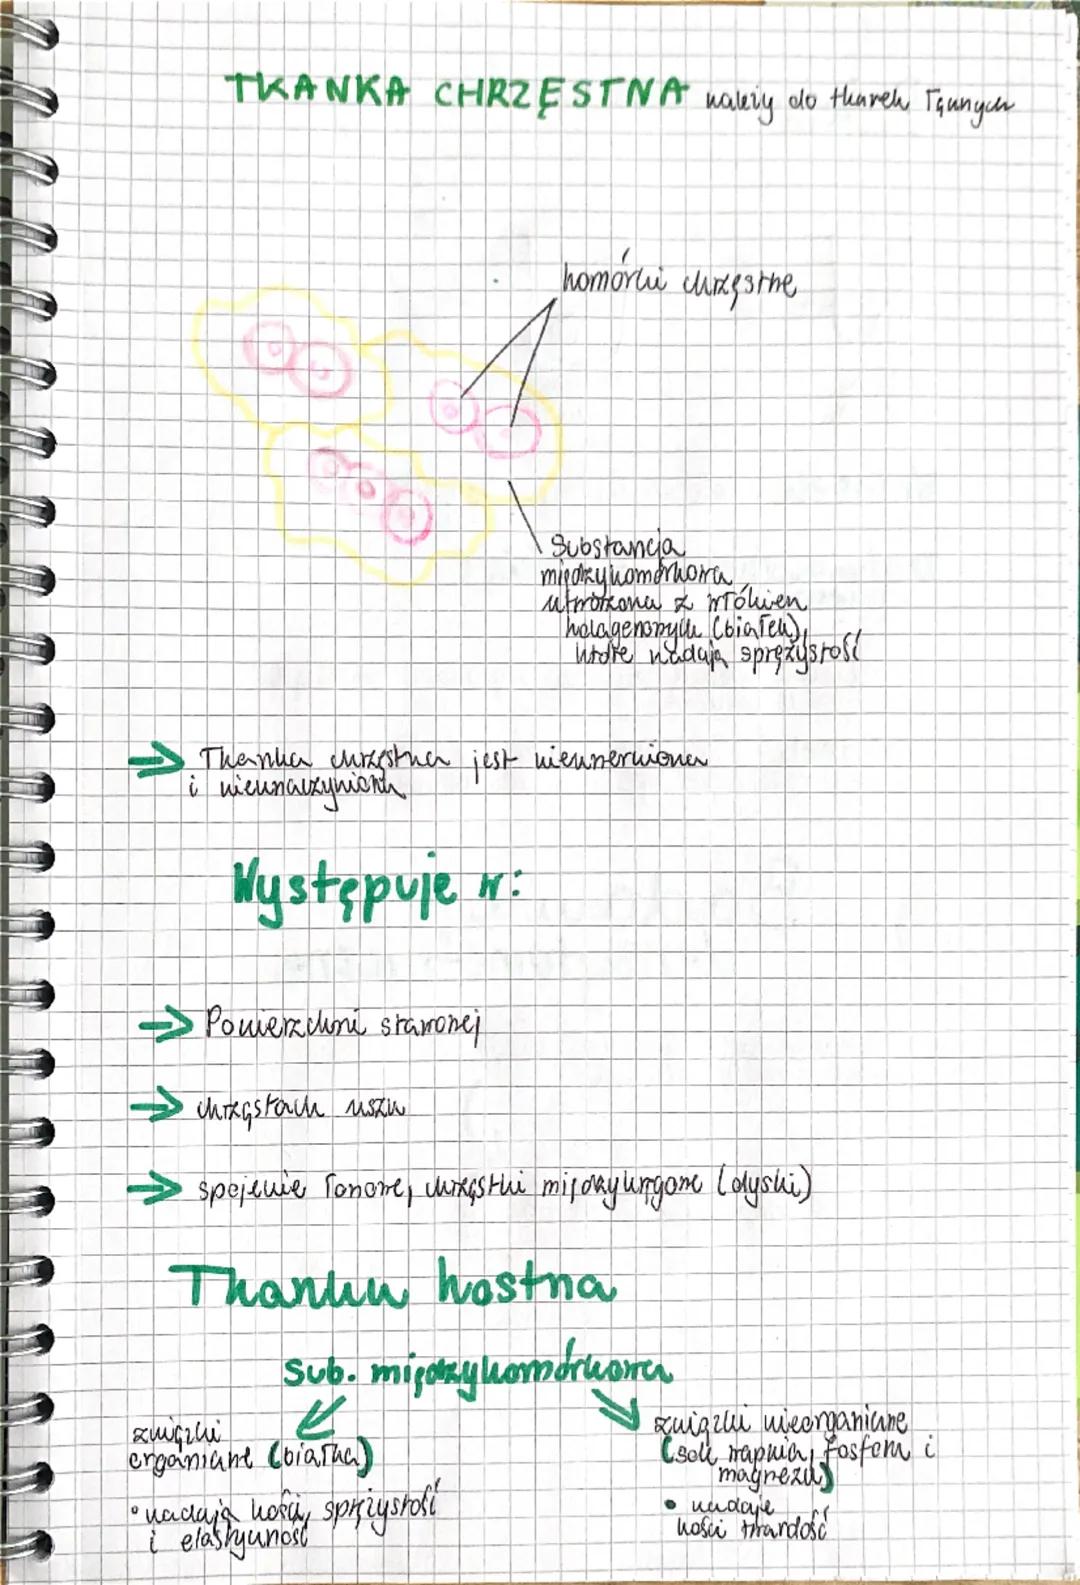 TKANKA CHRZĘSTNA należy do tkanek łącznych
komórki chrzęstne
Substancja
międzykomórkowa
utworzona z włókien
kolagenowych (białek),
które nadają sprężystość
→ Tkanka chrzęstna jest nieunerwiona
i nieunaczyniona
Występuje w:
→ Powierzchni stawowej
→ chrząstach uszu
→ spojenie łonowe, chrząstki międzykręgowe (dyski)
Tkanka kostna
Sub. międzykomórkowa
związki
organiczne (białka)
• nadają kości sprężystość
i elastyczność
związki nieorganiczne
(sole wapnia, fosforu i
magnezu)
• nadaje
kości twardość